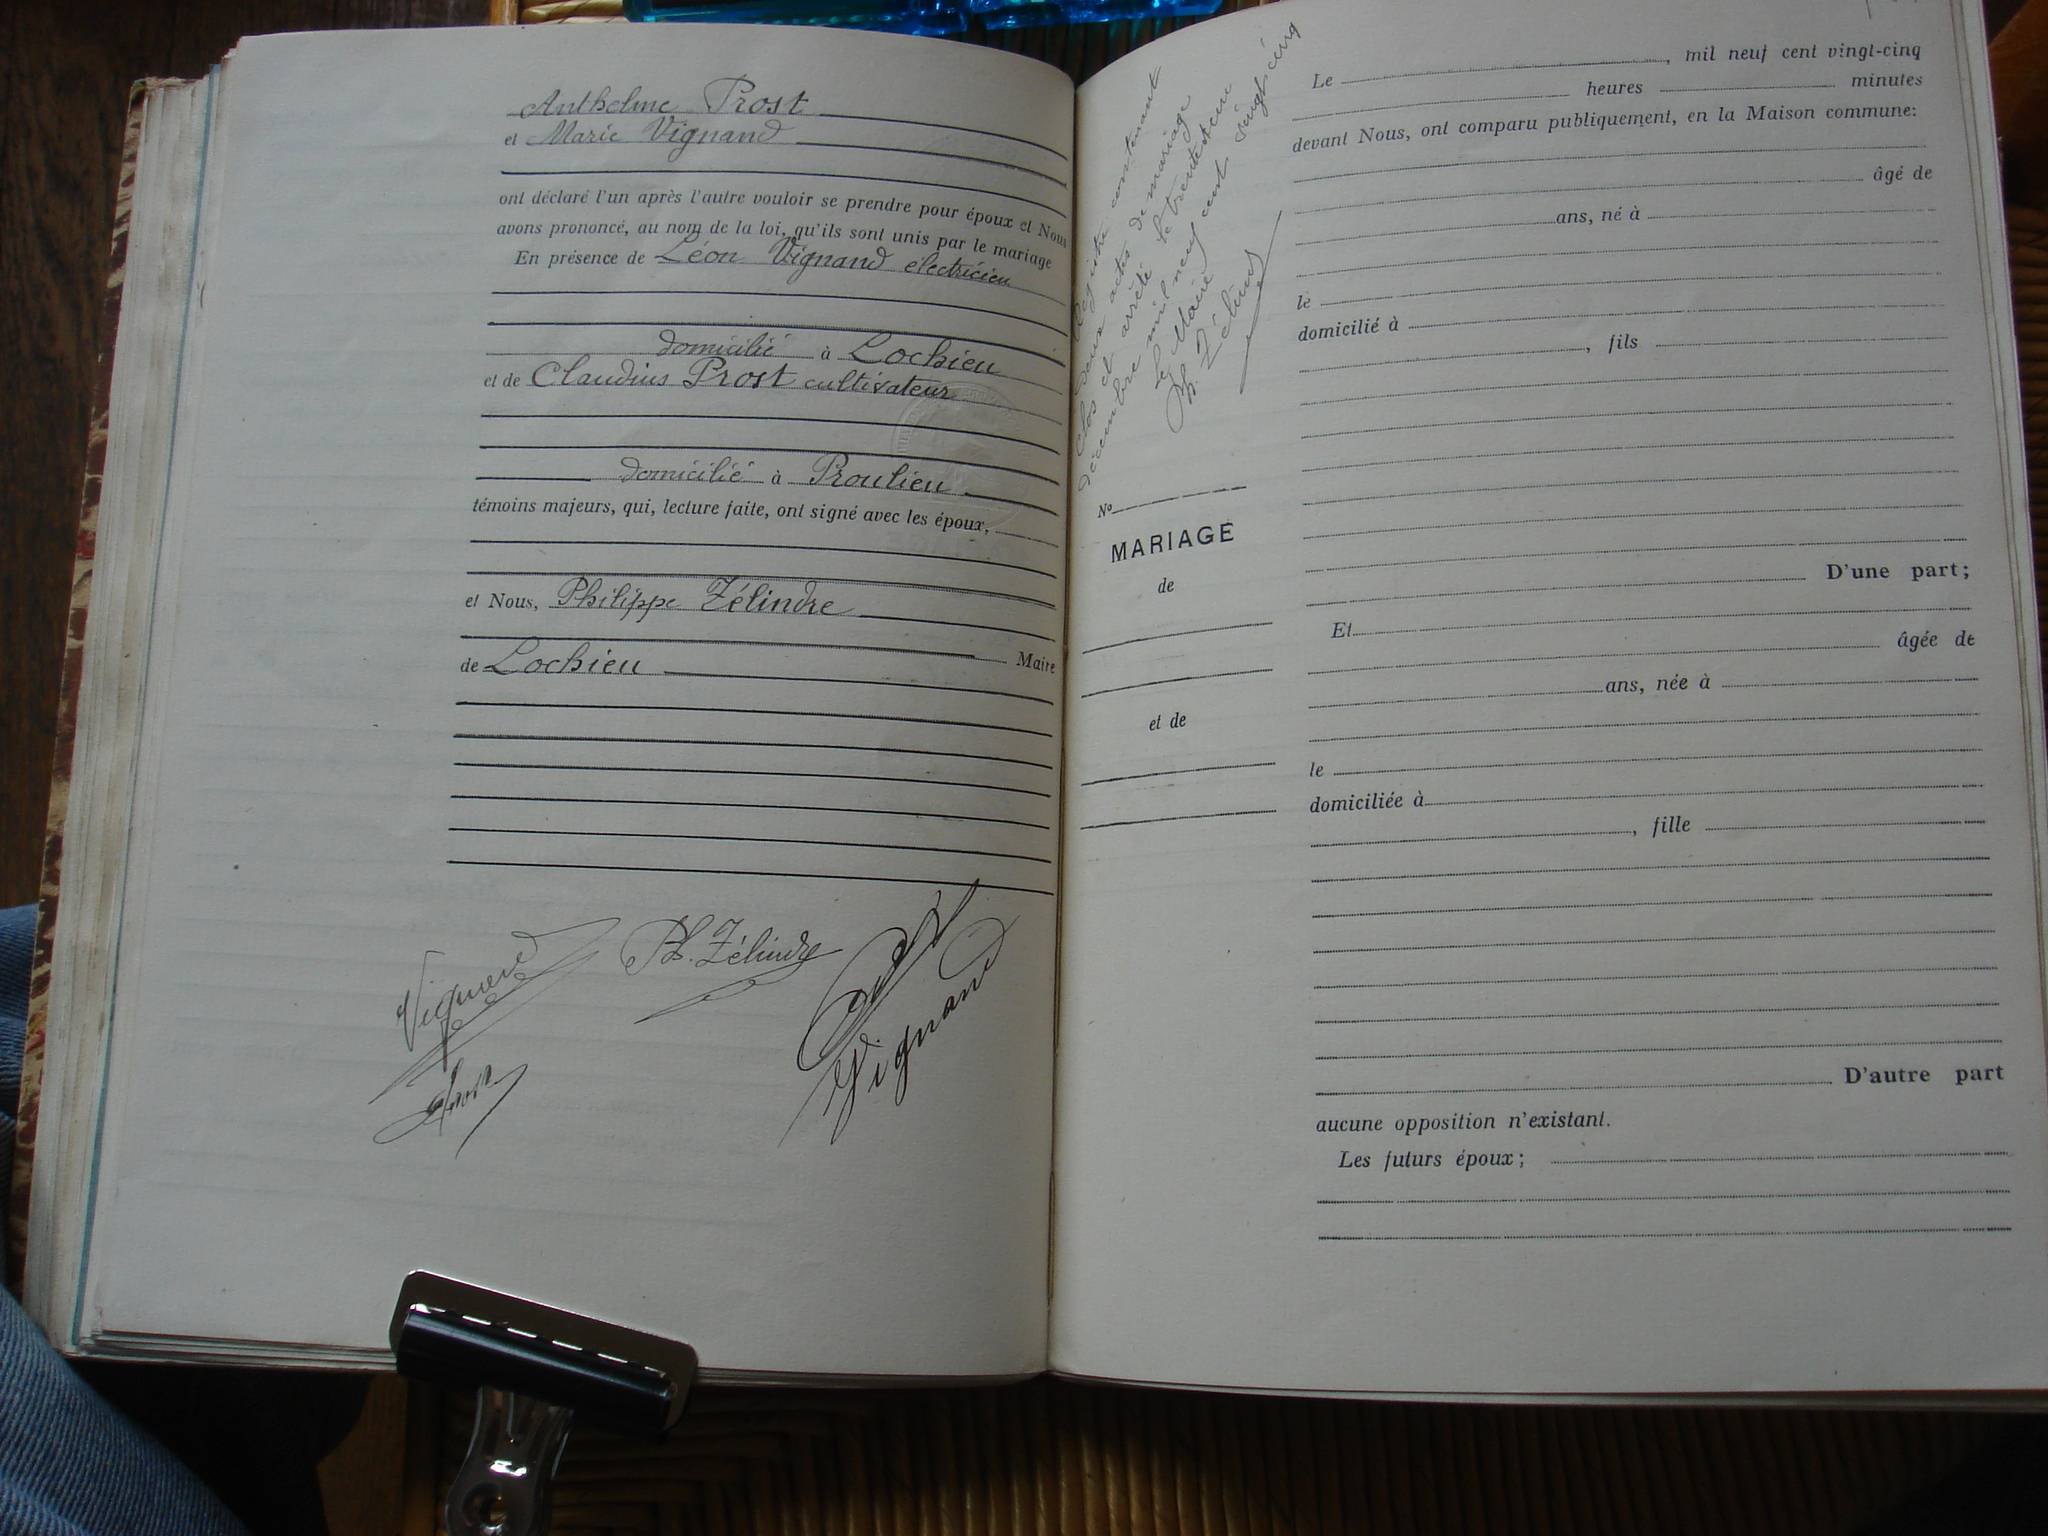 Anthelme Prost
et Marie Vignand
ont déclaré l'un après l'autre vouloir se prendre pour époux et Nous
avons prononcé, au nom de la loi, qu'ils sont unis par le mariage
En présence de Léon Vignand électricien
domicilié à Lochieu
et de Claudius Prost cultivateur
domicilié à Proulieu
témoins majeurs, qui, lecture faite, ont signé avec les époux,
et Nous, Philippe Zélindre
Maire
de Lochieu
Vignand
Ph. Zélindre
Prost
Vignand
registre contenant
deux actes de mariage
clos et arrêté le trente et un
décembre mil neuf cent vingt cinq
Le Maire
Ph. Zélindre
No
MARIAGE
de
et de
Le , mil neuf cent vingt-cinq
heures minutes
devant Nous, ont comparu publiquement, en la Maison commune:
âgé de
ans, né à
le
domicilié à
, fils
D'une part;
Et
âgée de
ans, née à
le
domiciliée à
, fille
D'autre part
aucune opposition n'existant.
Les futurs époux;